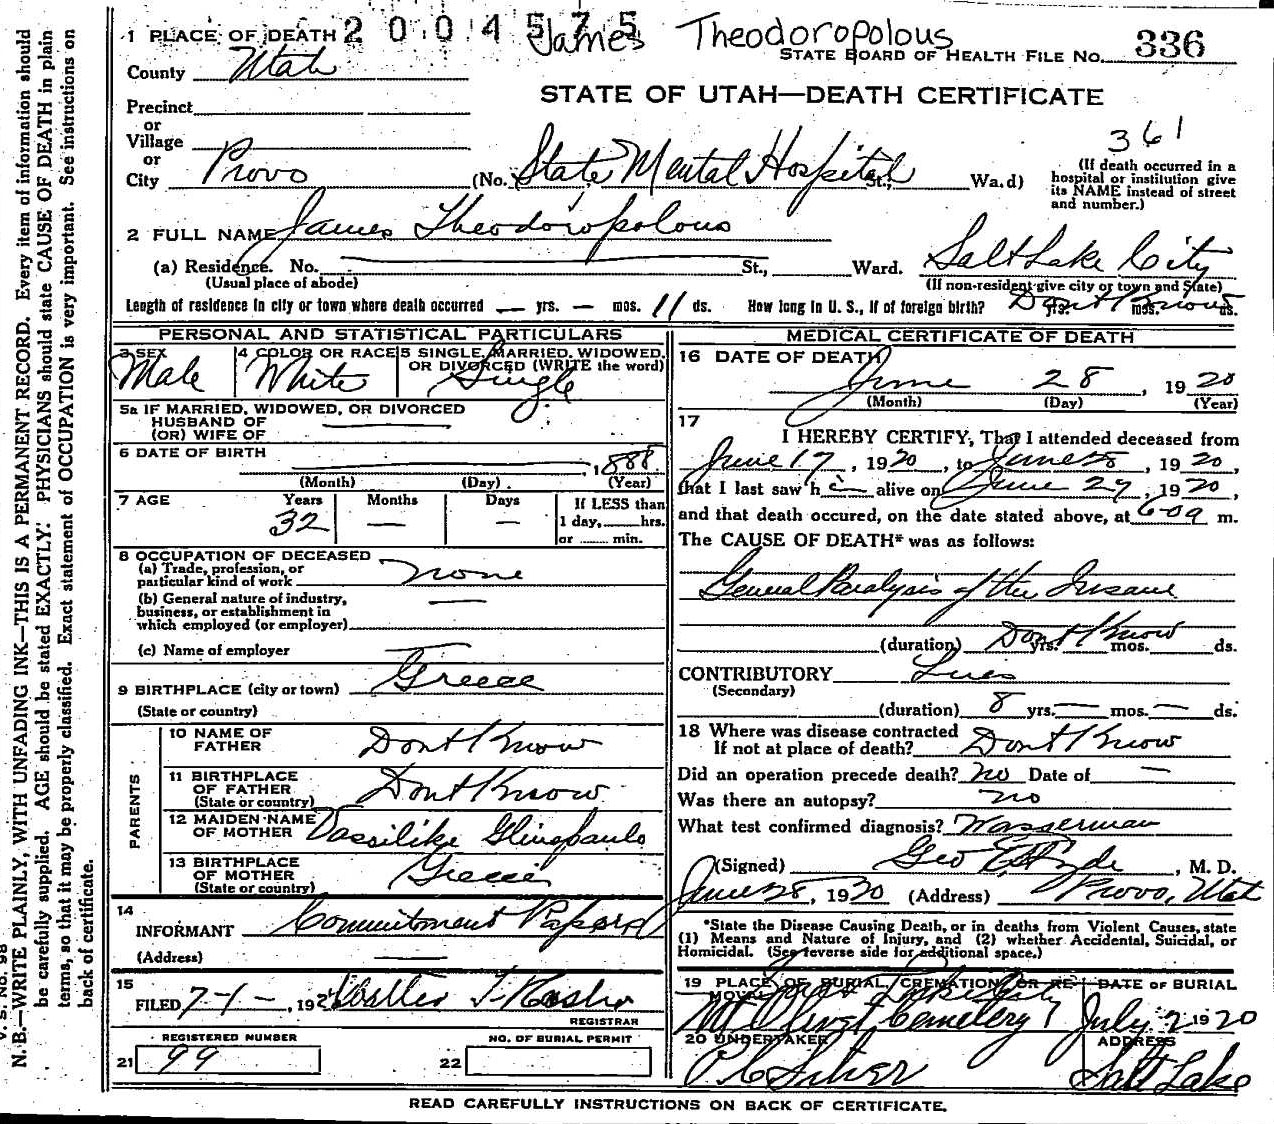 2004575
James Theodoropolous
1 PLACE OF DEATH
STATE BOARD OF HEALTH FILE No. 336
County Utah
STATE OF UTAH—DEATH CERTIFICATE
Precinct
or
Village
or
City Provo (No. State Mental Hospital St., Wa.d)
361
(If death occurred in a
hospital or institution give
its NAME instead of street
and number.)
2 FULL NAME James Theodoropolous
(a) Residence. No. St., Ward. Salt Lake City
(Usual place of abode) (If non-resident give city or town and State)
Length of residence in city or town where death occurred — yrs. — mos. 11 ds. How long in U. S., if of foreign birth? Dont Know yrs. mos. ds.
PERSONAL AND STATISTICAL PARTICULARS
3 SEX Male
4 COLOR OR RACE White
5 SINGLE, MARRIED, WIDOWED,
OR DIVORCED (WRITE the word)
Single
5a IF MARRIED, WIDOWED, OR DIVORCED
HUSBAND OF
(OR) WIFE OF
6 DATE OF BIRTH 1888
(Month) (Day) (Year)
7 AGE Years Months Days If LESS than
32 — — 1 day, hrs.
or min.
8 OCCUPATION OF DECEASED
(a) Trade, profession, or
particular kind of work none
(b) General nature of industry,
business, or establishment in
which employed (or employer)
(c) Name of employer
9 BIRTHPLACE (city or town) Greece
(State or country)
PARENTS
10 NAME OF
FATHER Dont Know
11 BIRTHPLACE
OF FATHER Dont Know
(State or country)
12 MAIDEN NAME
OF MOTHER Vassilike
13 BIRTHPLACE
OF MOTHER Greece
(State or country)
14
INFORMANT Commitment Papers
(Address)
15
FILED 7-1-, 192 Walter T.
REGISTRAR
REGISTERED NUMBER
21 99
NO. OF BURIAL PERMIT
22
MEDICAL CERTIFICATE OF DEATH
16 DATE OF DEATH
June 28, 1920
(Month) (Day) (Year)
17
I HEREBY CERTIFY, That I attended deceased from
June 17, 1920, to June 28, 1920,
that I last saw h i— alive on June 27, 1920,
and that death occured, on the date stated above, at 6-09 m.
The CAUSE OF DEATH* was as follows:
General Paralysis of the Insane
(duration) Dont Know yrs. mos. ds.
CONTRIBUTORY Lues
(Secondary)
(duration) 8 yrs. — mos. — ds.
18 Where was disease contracted
If not at place of death? Dont Know
Did an operation precede death? no Date of —
Was there an autopsy? no
What test confirmed diagnosis? Wasserman
(Signed) Geo E Hyde, M. D.
June 28, 1920 (Address) Provo, Utah
*State the Disease Causing Death, or in deaths from Violent Causes, state
(1) Means and Nature of Injury, and (2) whether Accidental, Suicidal, or
Homicidal. (See reverse side for additional space.)
19 PLACE OF BURIAL, CREMATION OR RE-
MOVAL
Salt Lake City
Mt Olivet Cemetery
DATE OF BURIAL
July 2 1920
20 UNDERTAKER
ADDRESS
Salt Lake
READ CAREFULLY INSTRUCTIONS ON BACK OF CERTIFICATE.
V. S. No. 98
N. B.—WRITE PLAINLY, WITH UNFADING INK—THIS IS A PERMANENT RECORD. Every item of information should
be carefully supplied. AGE should be stated EXACTLY. PHYSICIANS should state CAUSE OF DEATH in plain
terms, so that it may be properly classified. Exact statement of OCCUPATION is very important. See instructions on
back of certificate.